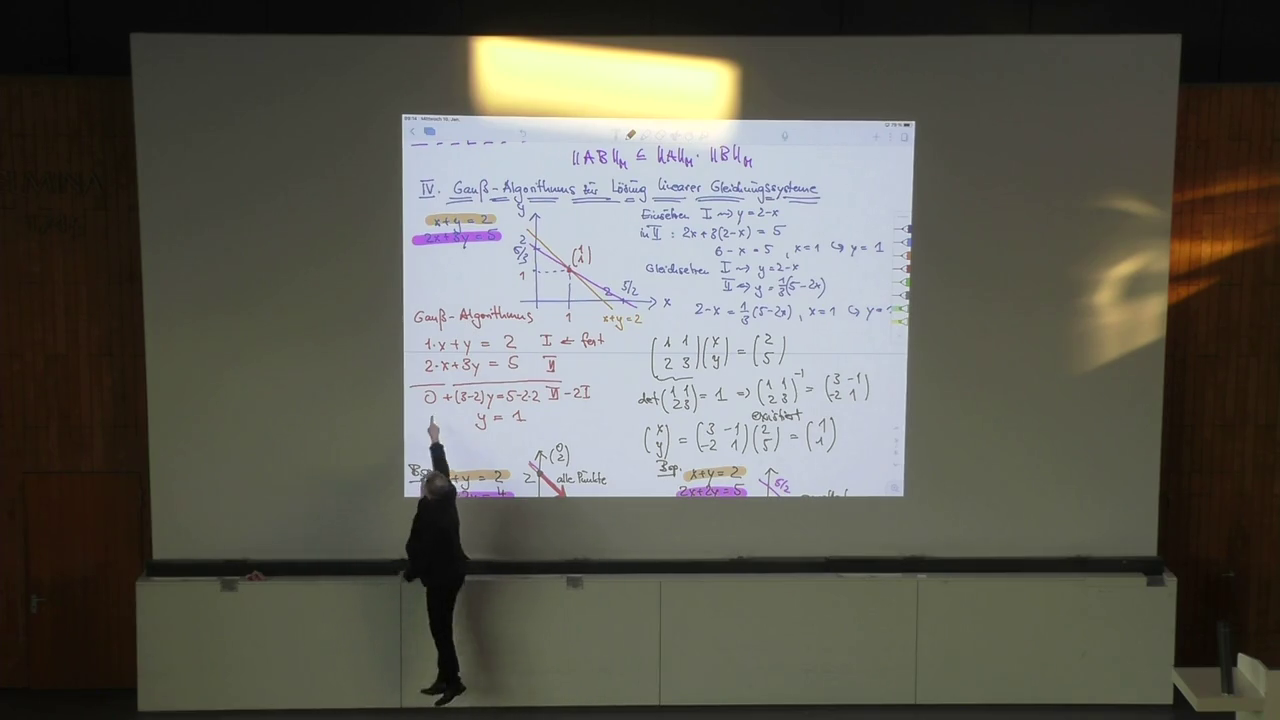 09:14 Mittwoch 10. Jan.
‖AB‖_M ≤ ‖A‖_M · ‖B‖_M
IV. Gauß-Algorithmus zur Lösung linearer Gleichungssysteme
x+y = 2
2x+3y = 5
y
2
5/3
1
(1 1)
1
2
5/2
x
x+y=2
Einsetzen I ⇝ y=2-x
in II : 2x+3(2-x) = 5
6-x=5 , x=1 ↪ y=1
Gleichsetzen I ⇝ y=2-x
II ⇝ y=1/3(5-2x)
2-x = 1/3(5-2x), x=1 ↪ y=
Gauß-Algorithmus
1·x+y = 2 I ← fest
2·x+3y = 5 II
0 +(3-2)y=5-2·2 II-2I
y = 1
(1 1 / 2 3)(x / y) = (2 / 5)
det(1 1 / 2 3) = 1 ⇒ (1 1 / 2 3)^-1 = (3 -1 / -2 1)
existiert
(x / y) = (3 -1 / -2 1)(2 / 5) = (1 / 1)
Bsp.
+y = 2
2y = 4
2
(0 2)
alle Punkte
Bsp.
x+y = 2
2x+2y = 5
5/2